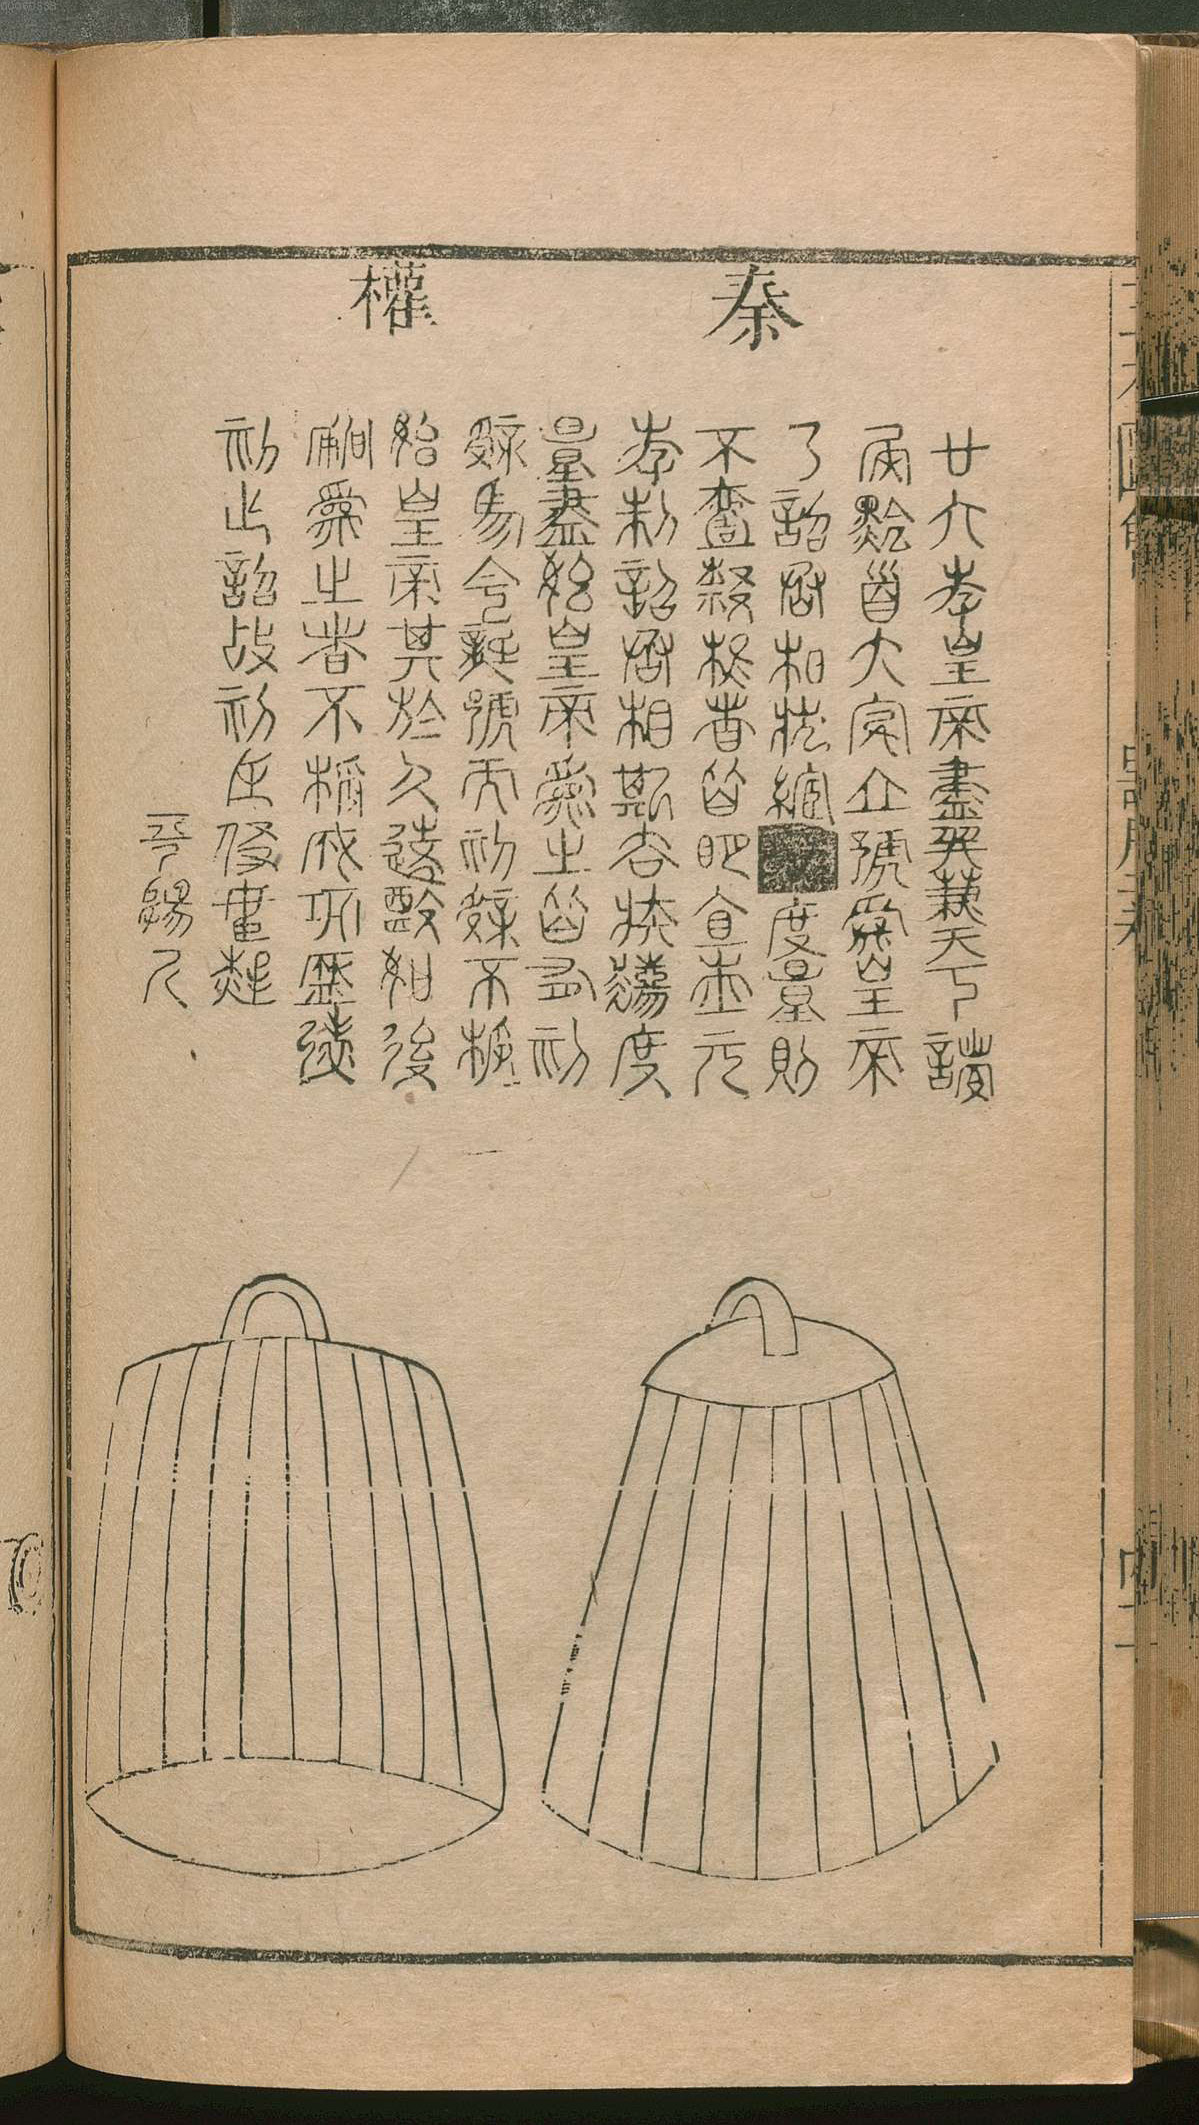 秦權
廿六年皇帝盡并兼天下諸
侯黔首大安立號爲皇帝
乃詔丞相狀綰度量則
不壹歉疑者皆明壹之元
年制詔丞相斯去疾灋度
量盡始皇帝爲之皆有刻
辭焉今襲號而刻辭不稱
始皇帝其於久遠殹如後
嗣爲之者不稱成功盛德
刻此詔故刻左使毋疑
平陽斤